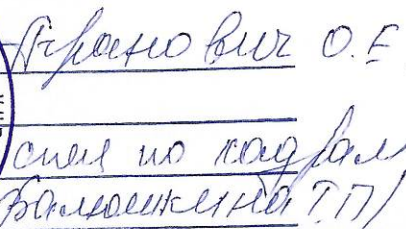 Аранович О.Е
спец по кадрам
Валюшкина Т.П/